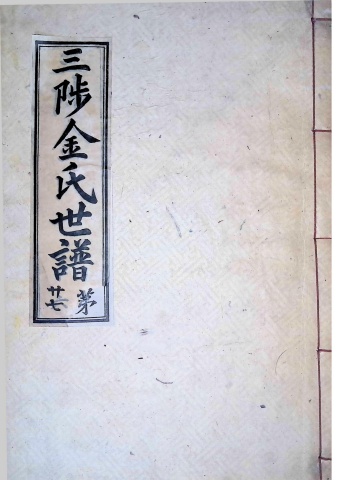 三陟金氏世譜
第
廿七